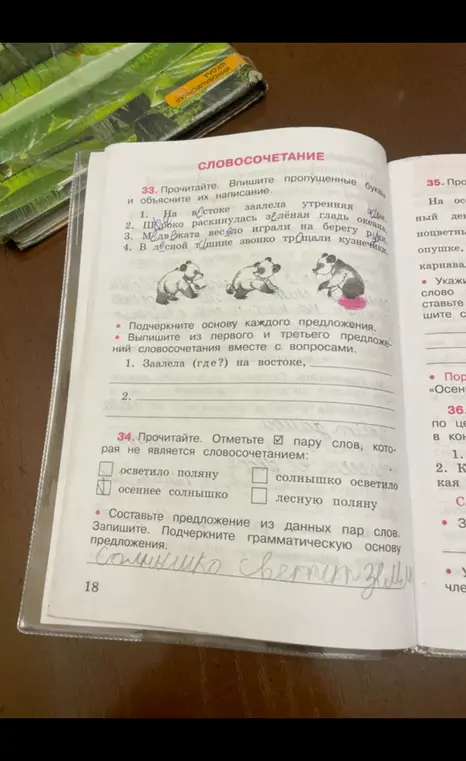 ИННОВАЦИОННАЯ
ШКОЛА
СЛОВОСОЧЕТАНИЕ
33. Прочитайте. Впишите пропущенные буквы
и объясните их написание.
1. На востоке заалела утренняя
2. Широко раскинулась зелёная гладь океана.
3. Медвежата весело играли на берегу реки.
4. В лесной тишине звонко трещали кузнечики.
• Подчеркните основу каждого предложения.
• Выпишите из первого и третьего предложе-
ний словосочетания вместе с вопросами.
1. Заалела (где?) на востоке,
2.
34. Прочитайте. Отметьте ☑ пару слов, кото-
рая не является словосочетанием:
осветило поляну
солнышко осветило
осеннее солнышко
лесную поляну
• Составьте предложение из данных пар слов.
Запишите. Подчеркните грамматическую основу
предложения.
солнышко светит
18
35. Про
На ос
ный ден
поцветны
опушке.
карнава
• Укажи
слово
ставьте
шите с
• Пор
«Осен
36.
по це
в кон
1.
2. К
кая
С
• З
• У
чле